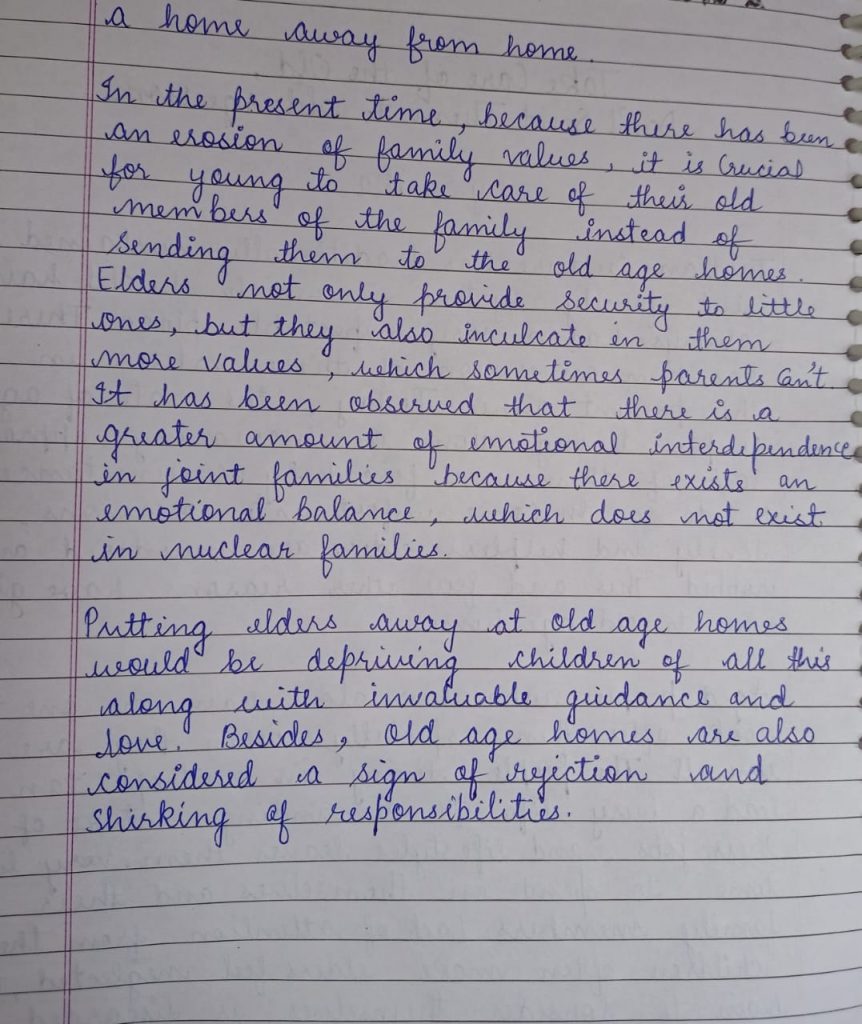 a home away from home.
In the present time, because there has been
an erosion of family values, it is crucial
for young to take care of their old
members of the family instead of
sending them to the old age homes.
Elders not only provide security to little
ones, but they also inculcate in them
more values, which sometimes parents can't.
It has been observed that there is a
greater amount of emotional interdependence
in joint families because there exists an
emotional balance, which does not exist
in nuclear families.
Putting elders away at old age homes
would be depriving children of all this
along with invaluable guidance and
love. Besides, old age homes are also
considered a sign of rejection and
shirking of responsibilities.